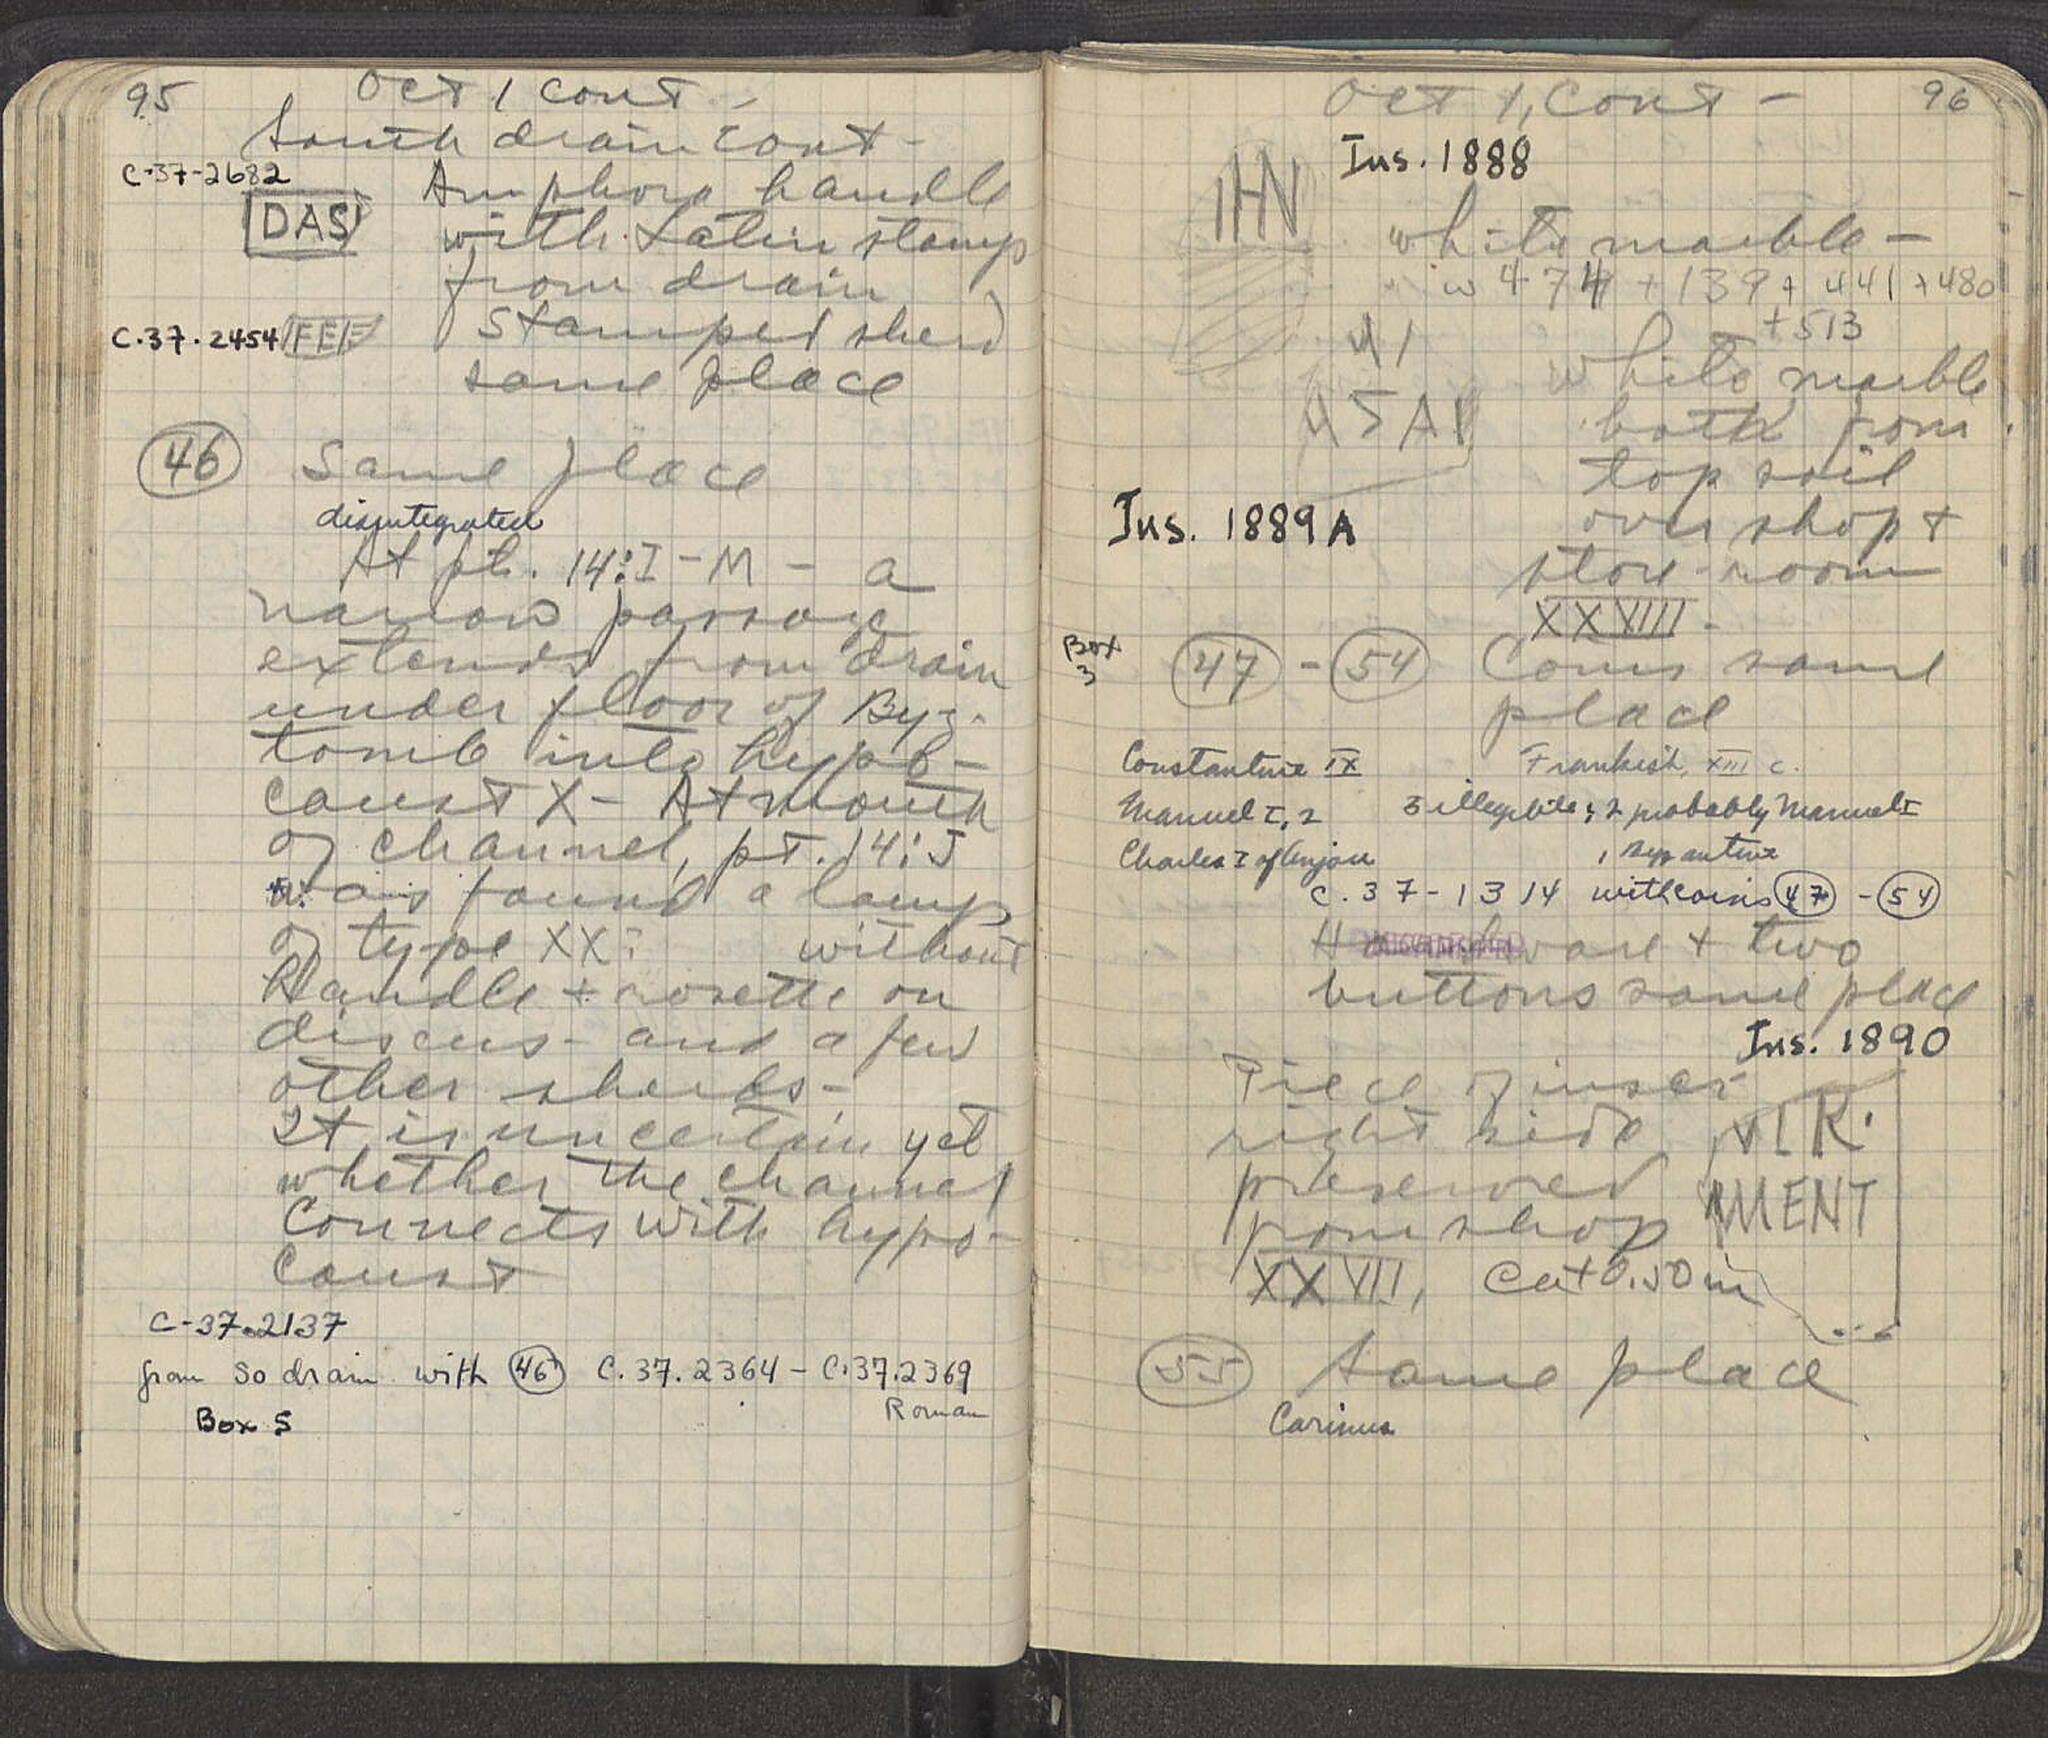 95
Oct 1 cont -
South drain cont -
C-37-2682
DAS
Amphora handle
with Latin stamp
from drain
C.37.2454 FEF
Stamped sherd
same place
46 Same place
disintegrated
At pt. 14:I-M - a
narrow passage
extends from drain
under floor of Byz.
tomb into hypo-
caust X - At mouth
of channel, pt. 14:J
was found a lamp
of type XX: without
handle + rosette on
discus - and a few
other sherds -
It is uncertain yet
whether the channel
connects with hypo-
caust
C-37-2137
from So drain with 46 C.37.2364 - C.37.2369
Roman
Box 5
Oct 1, cont - 96
IHN
Ins. 1888
white marble -
w 474 + 139 + 441 + 480
+ 513
white marble
both from
top soil
Ins. 1889A
over shop +
store-room
XXVIII -
Box 3
47 - 54 Coins same
place
Constantine IX Frankish, XIII c.
Manuel I, 2 3 illegible; 2 probably Manuel I
Charles I of Anjou 1 Byzantine
C.37-1314 with coins 47 - 54
vase + two
buttons same place
Ins. 1890
Piece of inscr
right side
preserved
from shop
XXVII, cat 0.50 m
VIR.
MENT
55 Same place
Carinus